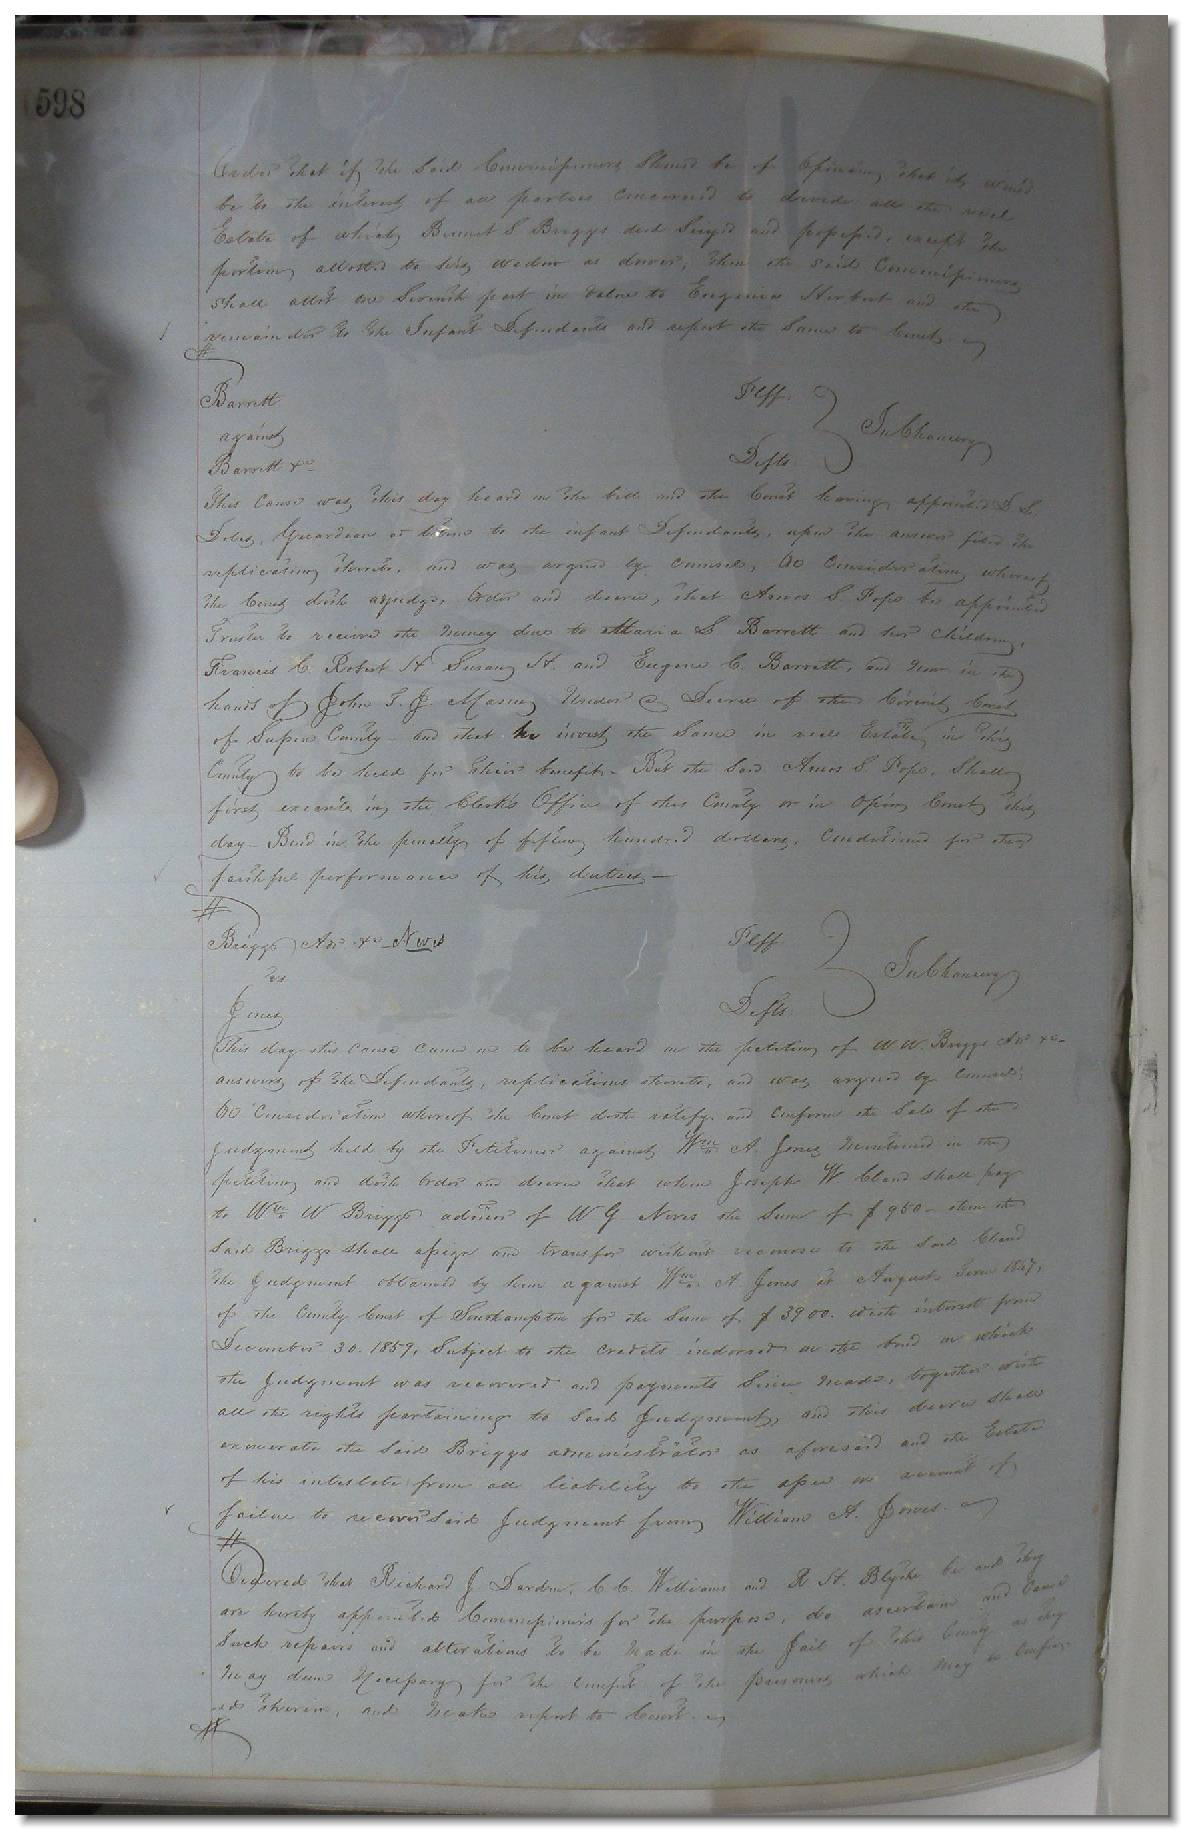 598
Order that if the said Commissioners should be of opinion that it would
be to the interest of all parties concerned to divide all the real
Estate of which Bennet S Briggs died Siezed and possessed, except the
portion allotted to his widow as dower, then the said Commissioners
shall allot one Seventh part in value to Eugenia Herbert and the
remainder to the Infant Defendants and report the Same to Court.
Barrett Plff.
against In Chancery
Barrett &c Defts.
This cause was this day heard on the bill and the Court having appointed D S.
Guardian ad litem to the infant Defendants, upon the answer filed the
replication thereto, and was argued by counsel, On Consideration whereof
the Court doth adjudge, Order and decree, that Amos S Pope be appointed
Trustee to recieve the money due to Maria S Barrett and her children,
Francis C. Robert H Susan H. and Eugene C. Barrett, and now in the
hands of John T. J. Mason Under a Decree of the Circuit Court
of Sussex County - and that he invest the Same in real Estate in this
County to be held for their benefit - But the said Amos S. Pope, Shall
first execute in the Clerk's Office of this County or in Open Court this
day - Bond in the penalty of fifteen hundred dollars, Conditioned for the
faithful performance of his duties —
Briggs Adr &c Plff
vs In Chancery
Jones Defts.
This day this cause came on to be heard on the petition of W W. Briggs Adr &c -
answers of the Defendants, replications thereto, and was argued by Counsel;
On Consideration whereof the Court doth ratify and confirm the Sale of the
Judgment held by the Petitioner against Wm A. Jones mentioned in the
petition and doth Order and decree that when Joseph W Claud shall pay
to Wm W Briggs admor of W G. the Sum of $950 - then the
said Briggs shall assign and transfer without recourse to the said Claud
the Judgment obtained by him against Wm A. Jones at August Term
of the County Court of Southampton for the Sum of $3900. with interest from
December 30. 1859, Subject to the credits indorsed on the bond on which
the Judgment was recovered and payments Since made, together with
all the rights pertaining to said Judgment, and this decree shall
exonerate the said Briggs administrator as aforesaid and the Estate
of his intestate from all liability to the on account of
failure to recover said Judgment from William A. Jones.
Ordered that Richard J Darden, C. C. Williams and R H. Blythe be and they
are hereby appointed Commissioners for the purpose, do ascertain and cause
Such repairs and alterations to be made in the Jail of this County as they
may deem Necessary for the comfort of the prisoners which may be confin-
ed therein, and make report to Court.